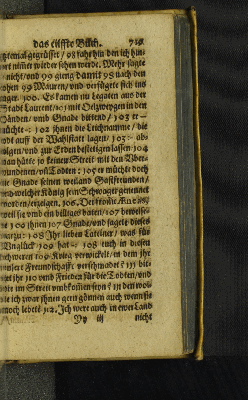 das eilffte Buch. 719.
tztemal gegrüsset / 98 fahr hin den ich hin-
fort nimer wieder sehen werde. Mehr sagte
nicht / und 99 gieng damit 95 nach den
hohen 99 Mauren / und verfügte sich ins
ager. 100. Es kamen nu Legaten aus der
Stadt Laurent / 101 mit Oelzweygen in den
Händen / umb Gnade bittend / 103 er-
suchte: 102 ihnen die Leichnamme / die
auff der Wahlstatt lagen / 103: ab-
folgen / und zur Erden bestetigen lassen 104
man hätte ja keinen Streit mit den Uber-
wundenen / uñ Todten: 105 er müchte doch
die Gnade seinen weiland Gastfreunden /
und welcher König sein Schwager genennet
worden / erzeigen. 106. Der from̃e Æneas /
weil sie umb ein billiges baten / 107 bewiese-
te 100 ihnen 107 Gnade / und sagete dieses
darzu: 108 Ihr lieben Latiner / was für
Unglück 109 hat 108 euch in diesen
schweren 109 Krieg verwickelt / in dem ihr
unsere Freundschafft verschmähet? 111 bit-
tet ihr 110 umb Friede für die Todten / und
die im Streit umbkommen seyn? 111 den wol-
te ich zwar ihnen gern gönnen auch wenn sie
noch lebete 112. Ich were auch in ewer Land
Yy iij nicht